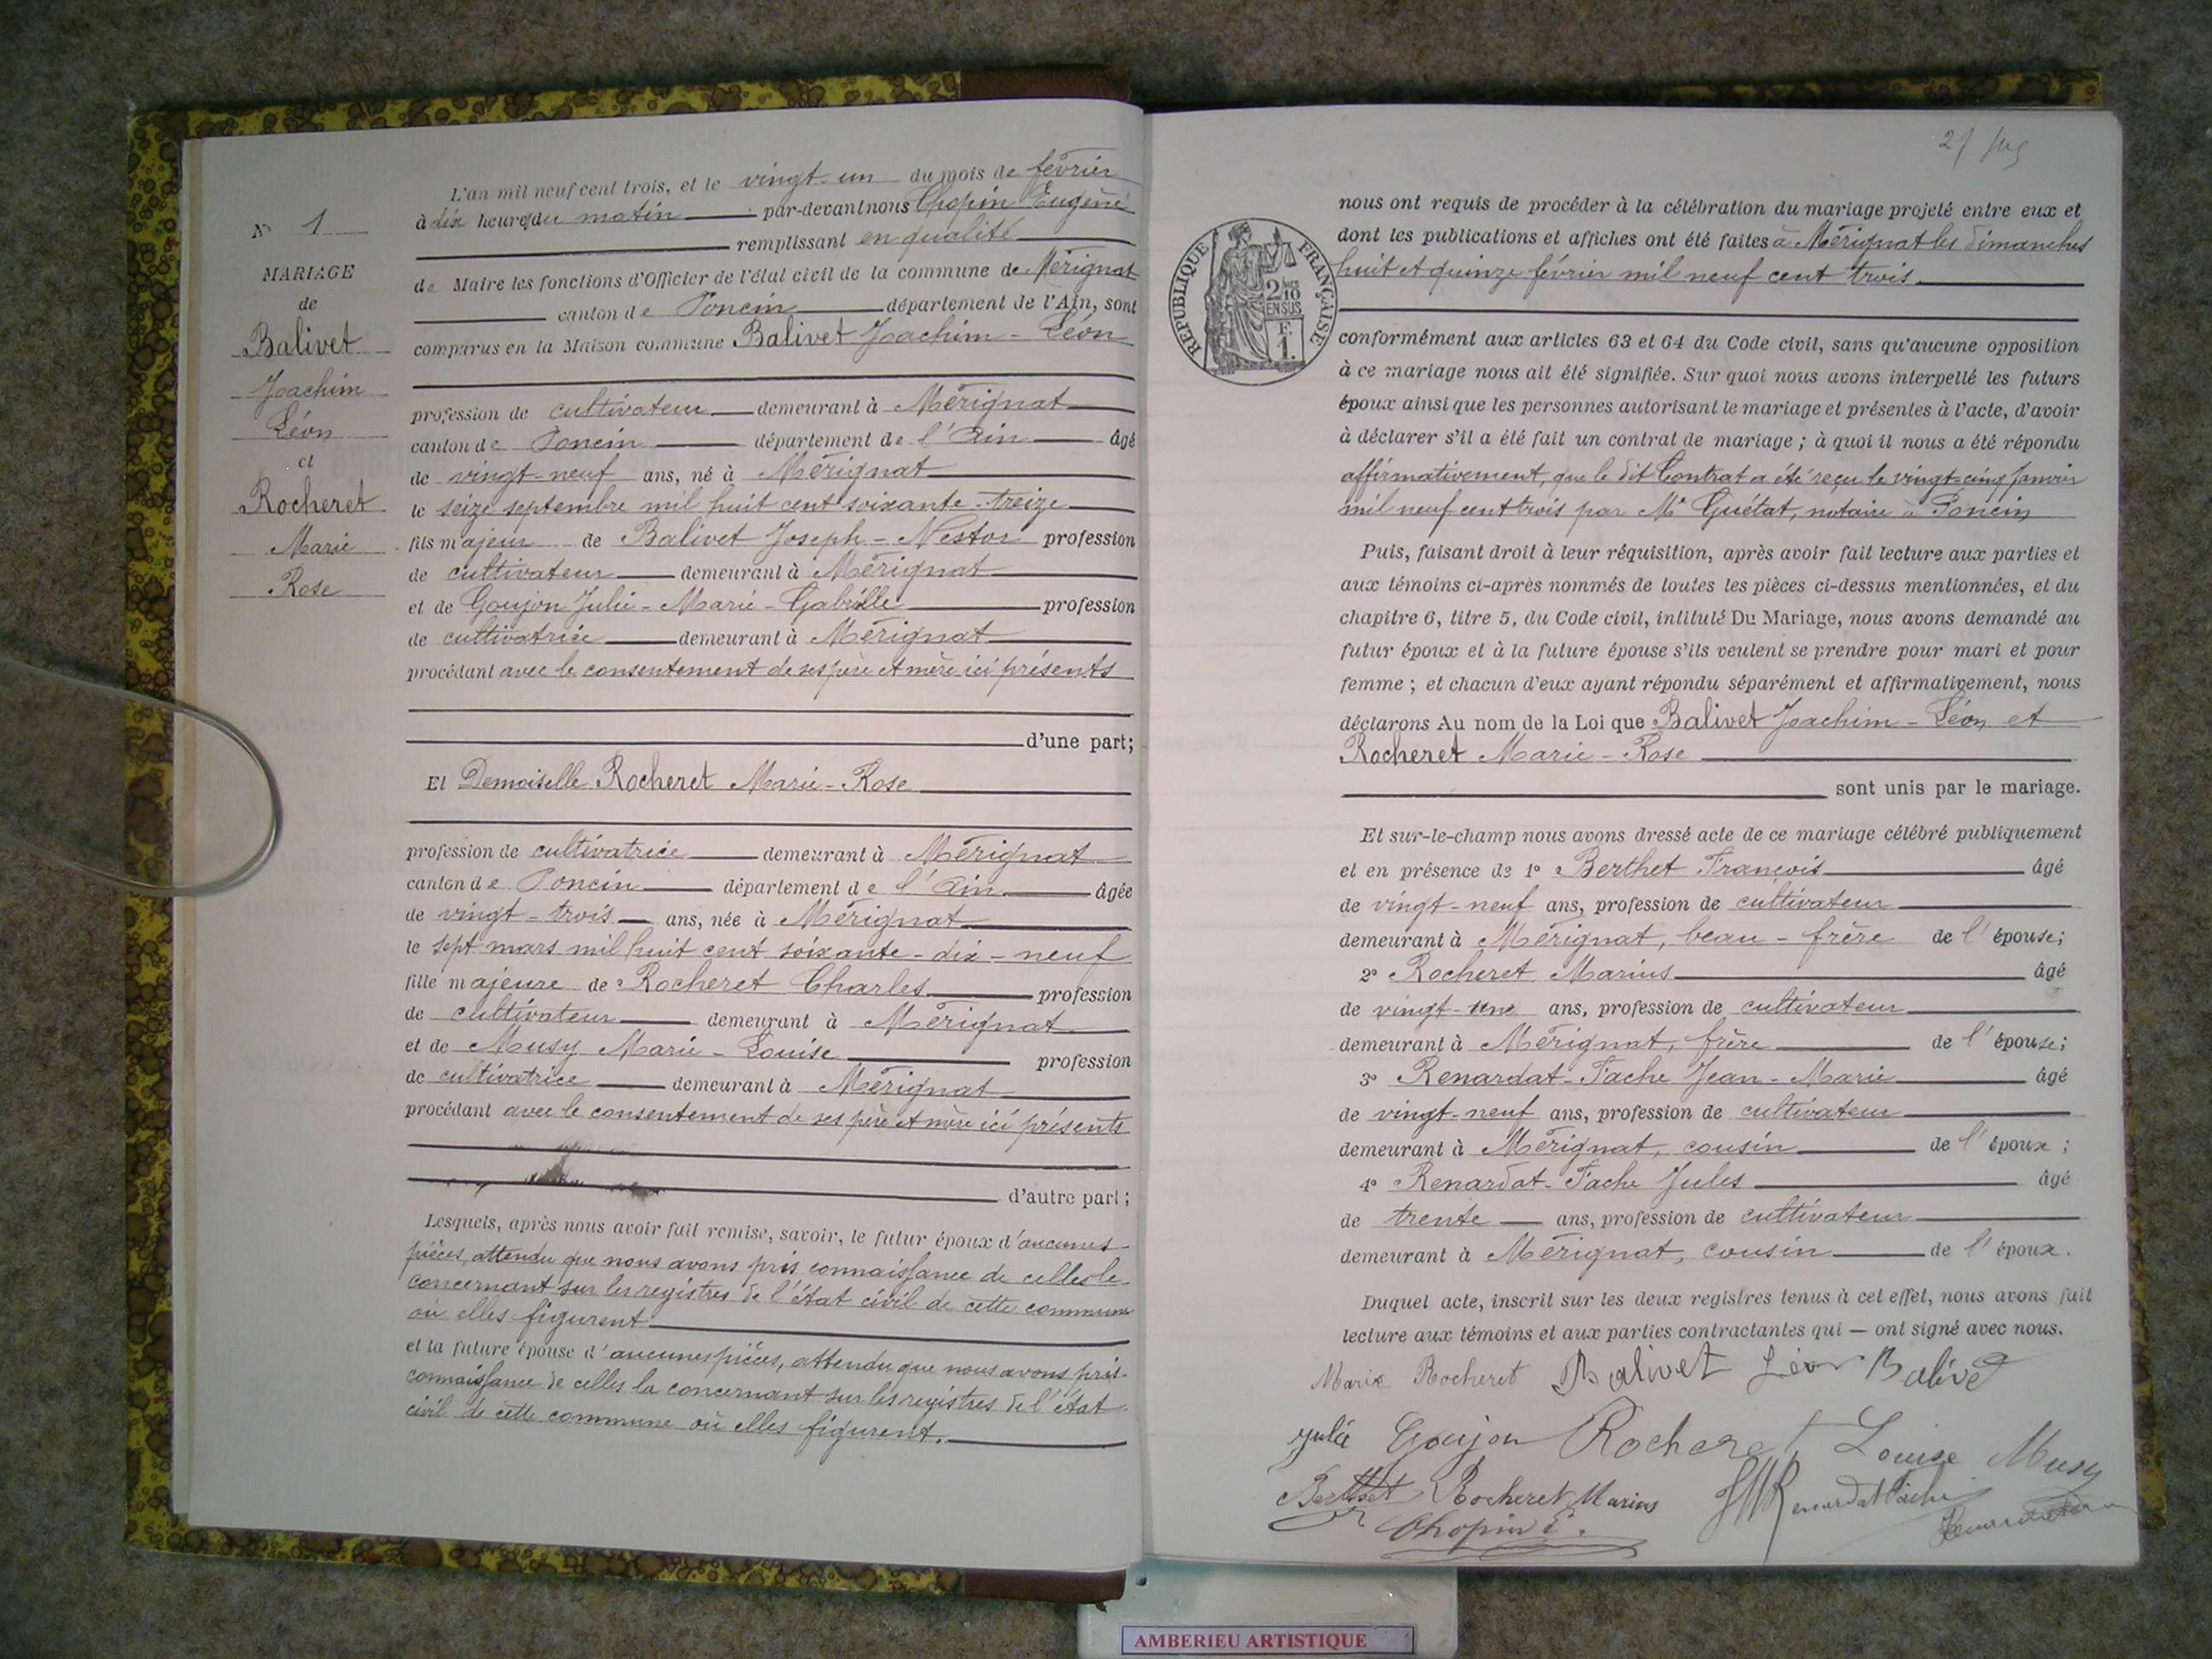 L'an mil neuf cent trois, et le vingt-un du mois de février
à dix heures du matin par-devant nous Chopin Eugène
remplissant en qualité
de Maire les fonctions d'Officier de l'état civil de la commune de Mérignat
canton de Poncin département de l'Ain, sont
comparus en la Maison commune Balivet Joachim-Léon
profession de cultivateur demeurant à Mérignat
canton de Poncin département de l'Ain âgé
de vingt-neuf ans, né à Mérignat
le seize septembre mil huit cent soixante-treize
fils majeur de Balivet Joseph-Nestor profession
de cultivateur demeurant à Mérignat
et de Goujon Julie-Marie-Gabrille profession
de cultivatrice demeurant à Mérignat
procédant avec le consentement de ses père et mère ici présents
d'une part;
Et Demoiselle Rocheret Marie-Rose
profession de cultivatrice demeurant à Mérignat
canton de Poncin département de l'Ain âgée
de vingt-trois ans, née à Mérignat
le sept mars mil huit cent soixante-dix-neuf
fille majeure de Rocheret Charles profession
de cultivateur demeurant à Mérignat
et de Musy Marie-Louise profession
de cultivatrice demeurant à Mérignat
procédant avec le consentement de ses père et mère ici présents
d'autre part;
Lesquels, après nous avoir fait remise, savoir, le futur époux d'aucunes
pièces, attendu que nous avons pris connaissance de celles le
concernant sur les registres de l'état civil de cette commune
où elles figurent
et la future épouse d'aucunes pièces, attendu que nous avons pris
connaissance de celles la concernant sur les registres de l'état
civil de cette commune où elles figurent.
N° 1
MARIAGE
de
Balivet
Joachim
Léon
et
Rocheret
Marie
Rose
RÉPUBLIQUE FRANÇAISE
2/10 EN SUS
F.
1.
nous ont requis de procéder à la célébration du mariage projeté entre eux et
dont les publications et affiches ont été faites à Mérignat les dimanches
huit et quinze février mil neuf cent trois
conformément aux articles 63 et 64 du Code civil, sans qu'aucune opposition
à ce mariage nous ait été signifiée. Sur quoi nous avons interpellé les futurs
époux ainsi que les personnes autorisant le mariage et présentes à l'acte, d'avoir
à déclarer s'il a été fait un contrat de mariage ; à quoi il nous a été répondu
affirmativement, que le dit Contrat a été reçu le vingt-cinq Janvier
mil neuf cent trois par Me Guétat, notaire à Poncin
Puis, faisant droit à leur réquisition, après avoir fait lecture aux parties et
aux témoins ci-après nommés de toutes les pièces ci-dessus mentionnées, et du
chapitre 6, titre 5, du Code civil, intitulé Du Mariage, nous avons demandé au
futur époux et à la future épouse s'ils veulent se prendre pour mari et pour
femme ; et chacun d'eux ayant répondu séparément et affirmativement, nous
déclarons Au nom de la Loi que Balivet Joachim-Léon et
Rocheret Marie-Rose
sont unis par le mariage.
Et sur-le-champ nous avons dressé acte de ce mariage célébré publiquement
et en présence de 1° Berthet François âgé
de vingt-neuf ans, profession de cultivateur
demeurant à Mérignat, beau-frère de l'épouse;
2° Rocheret Marius âgé
de vingt-un ans, profession de cultivateur
demeurant à Mérignat, frère de l'épouse;
3° Renardat-Fache Jean-Marie âgé
de vingt-neuf ans, profession de cultivateur
demeurant à Mérignat, cousin de l'époux ;
4° Renardat-Fache Jules âgé
de trente ans, profession de cultivateur
demeurant à Mérignat, cousin de l'époux.
Duquel acte, inscrit sur les deux registres tenus à cet effet, nous avons fait
lecture aux témoins et aux parties contractantes qui — ont signé avec nous.
Marie Rocheret Balivet Léon Balivet
Julie Goujon Rocheret Louise Musy
Berthet Rocheret Marius JMRenardat Fache
Chopin E.
AMBERIEU ARTISTIQUE